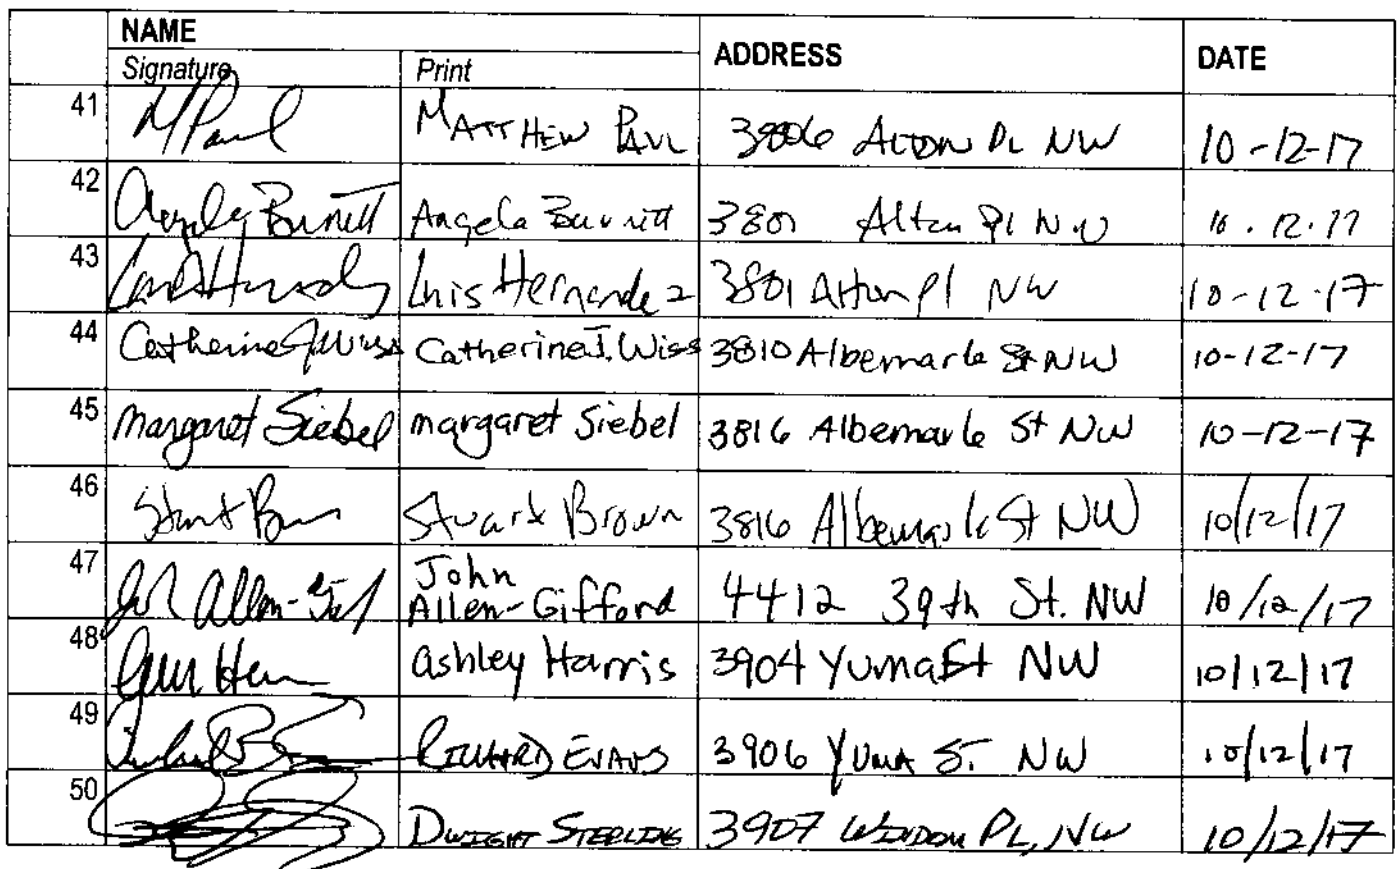 NAME ADDRESS DATE
Signature Print
41 M Paul MATTHEW PAUL 3806 ALTON PL NW 10-12-17
42 Angela Burnett Angela Burnett 3801 Alton Pl NW 10.12.17
43 Luis Hernandez 3801 Alton pl NW 10-12-17
44 Catherine J Wiss Catherine J. Wiss 3810 Albemarle St NW 10-12-17
45 Margaret Siebel margaret Siebel 3816 Albemarle St NW 10-12-17
46 Stuart Brown Stuart Brown 3816 Albemarle St NW 10/12/17
47 John
Allen-Gifford 4412 39th St. NW 10/12/17
48 Ashley Harris 3904 Yuma St NW 10/12/17
49 RICHARD EVANS 3906 YUMA ST. NW 10/12/17
50 DWIGHT STERLING 3907 WINDOM PL, NW 10/12/17